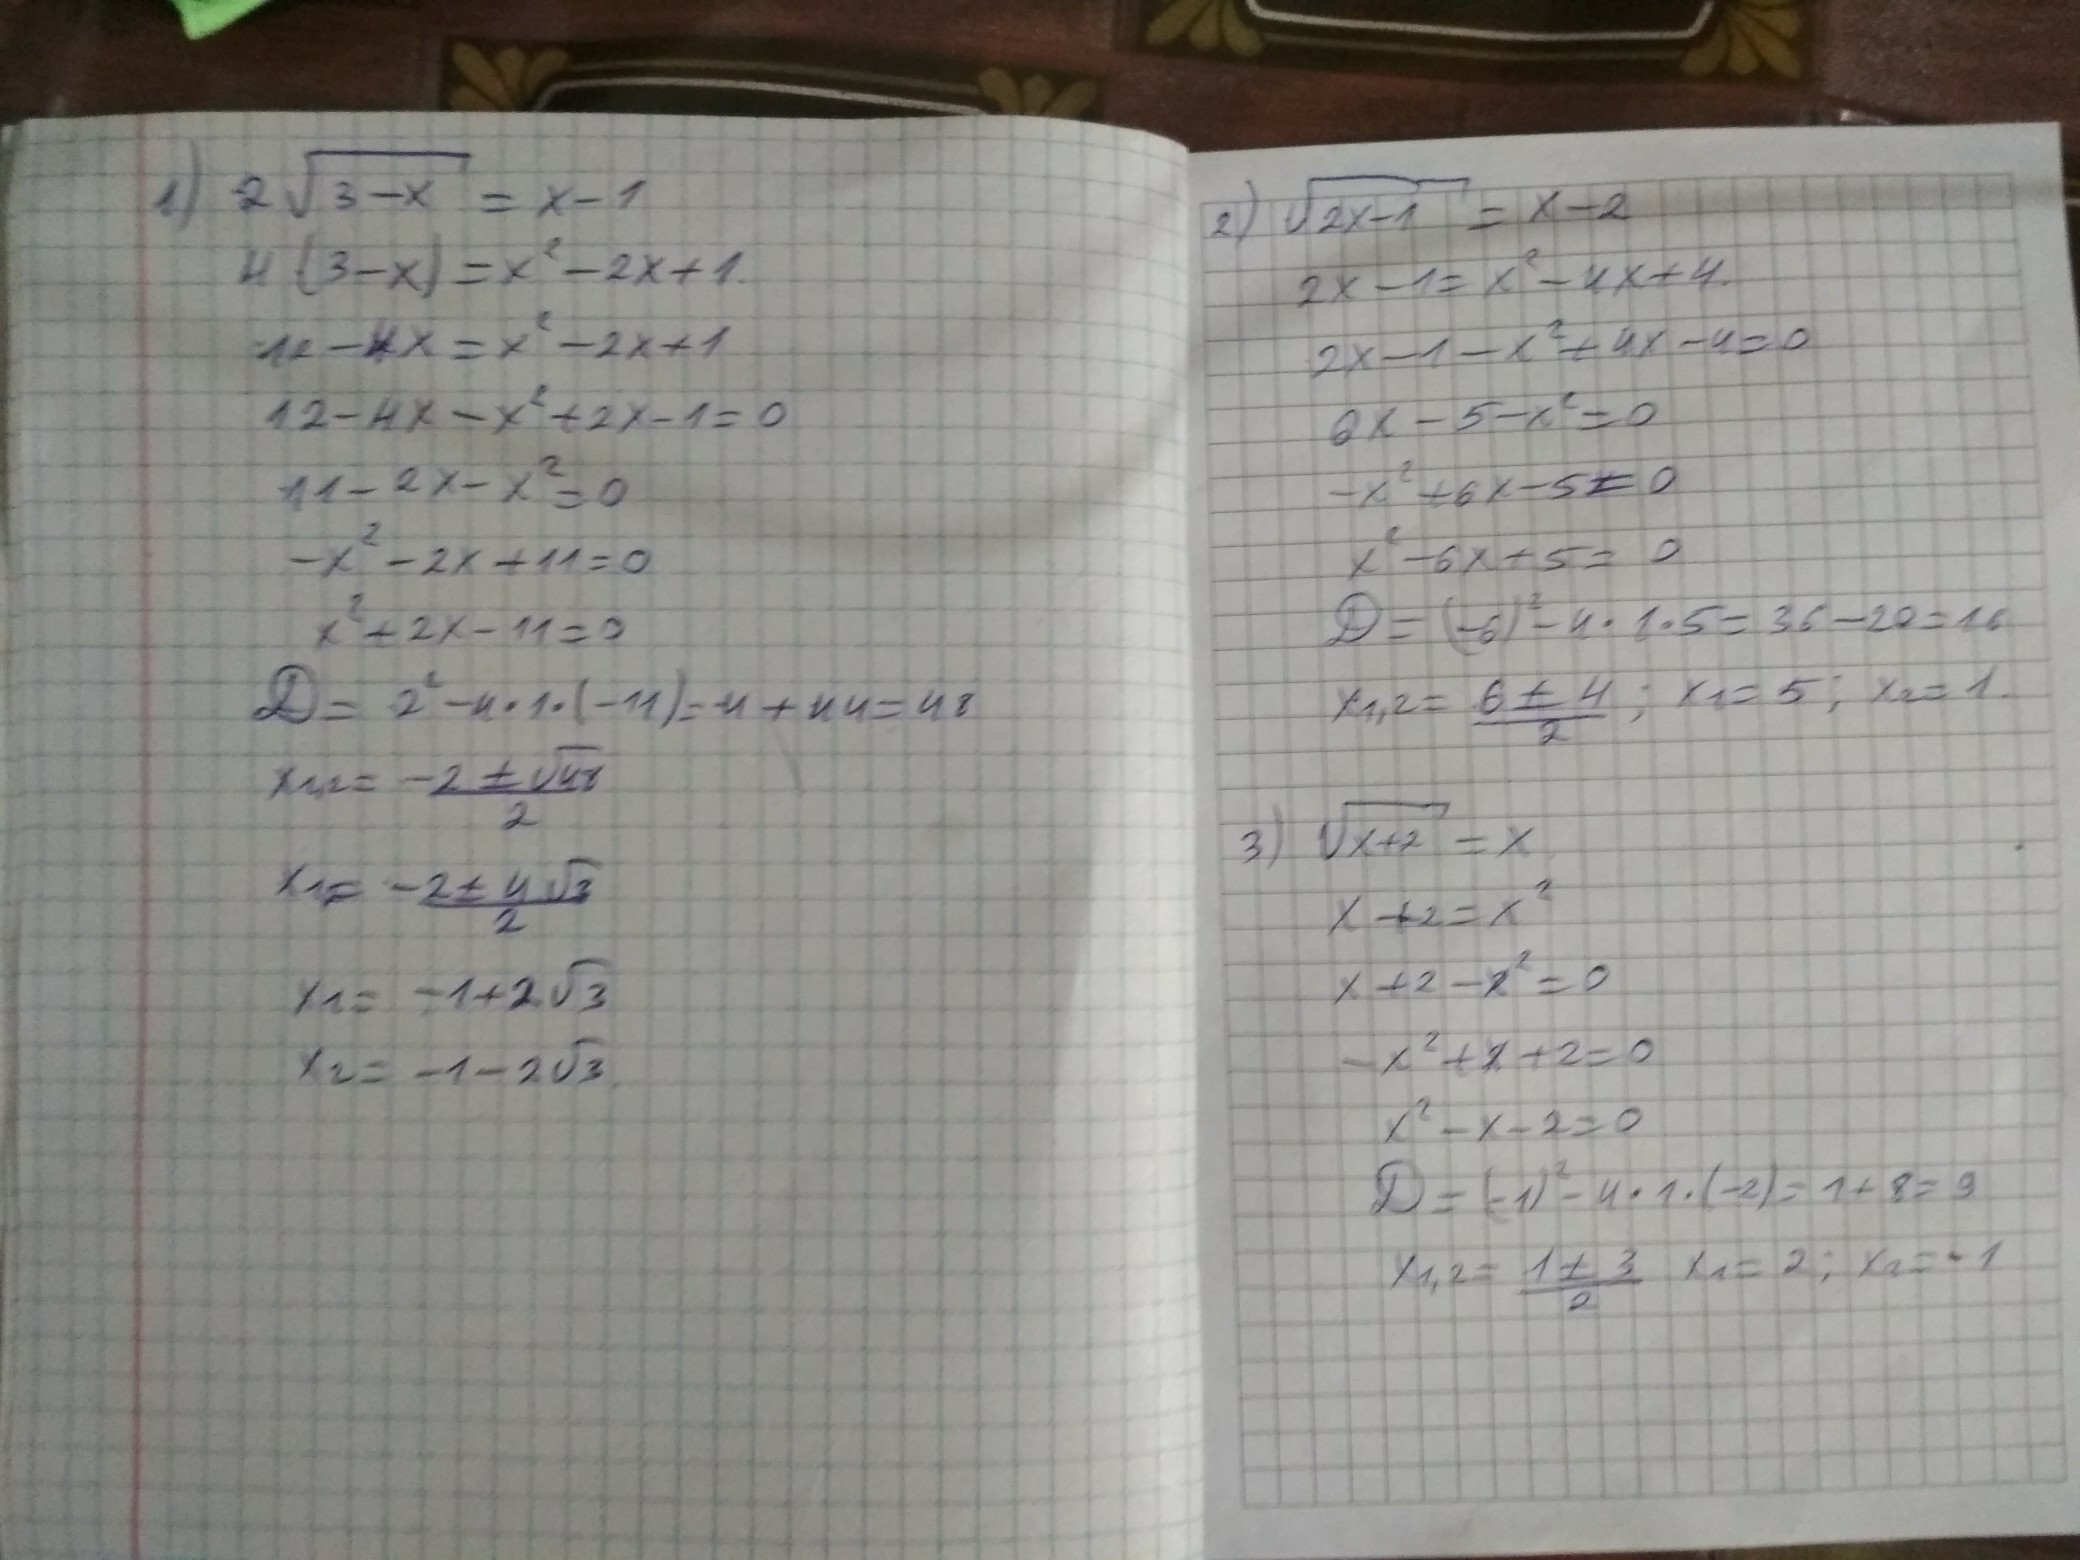 1) 2√(3-x) = x-1
4(3-x) = x²-2x+1.
12-4x = x²-2x+1
12-4x-x²+2x-1=0
11-2x-x²=0
-x²-2x+11=0
x²+2x-11=0
D = 2²-4·1·(-11)=4+44=48
x1,2 = (-2±√48)/2
x1 = (-2±4√3)/2
x1 = -1+2√3
x2 = -1-2√3.
2) √(2x-1) = x-2
2x-1=x²-4x+4.
2x-1-x²+4x-4=0
6x-5-x²=0
-x²+6x-5=0
x²-6x+5=0
D = (-6)²-4·1·5=36-20=16
x1,2 = (6±4)/2; x1=5; x2=1.
3) √(x+2) = x
x+2=x²
x+2-x²=0
-x²+x+2=0
x²-x-2=0
D = (-1)²-4·1·(-2)=1+8=9
x1,2 = (1±3)/2 x1=2; x2=-1